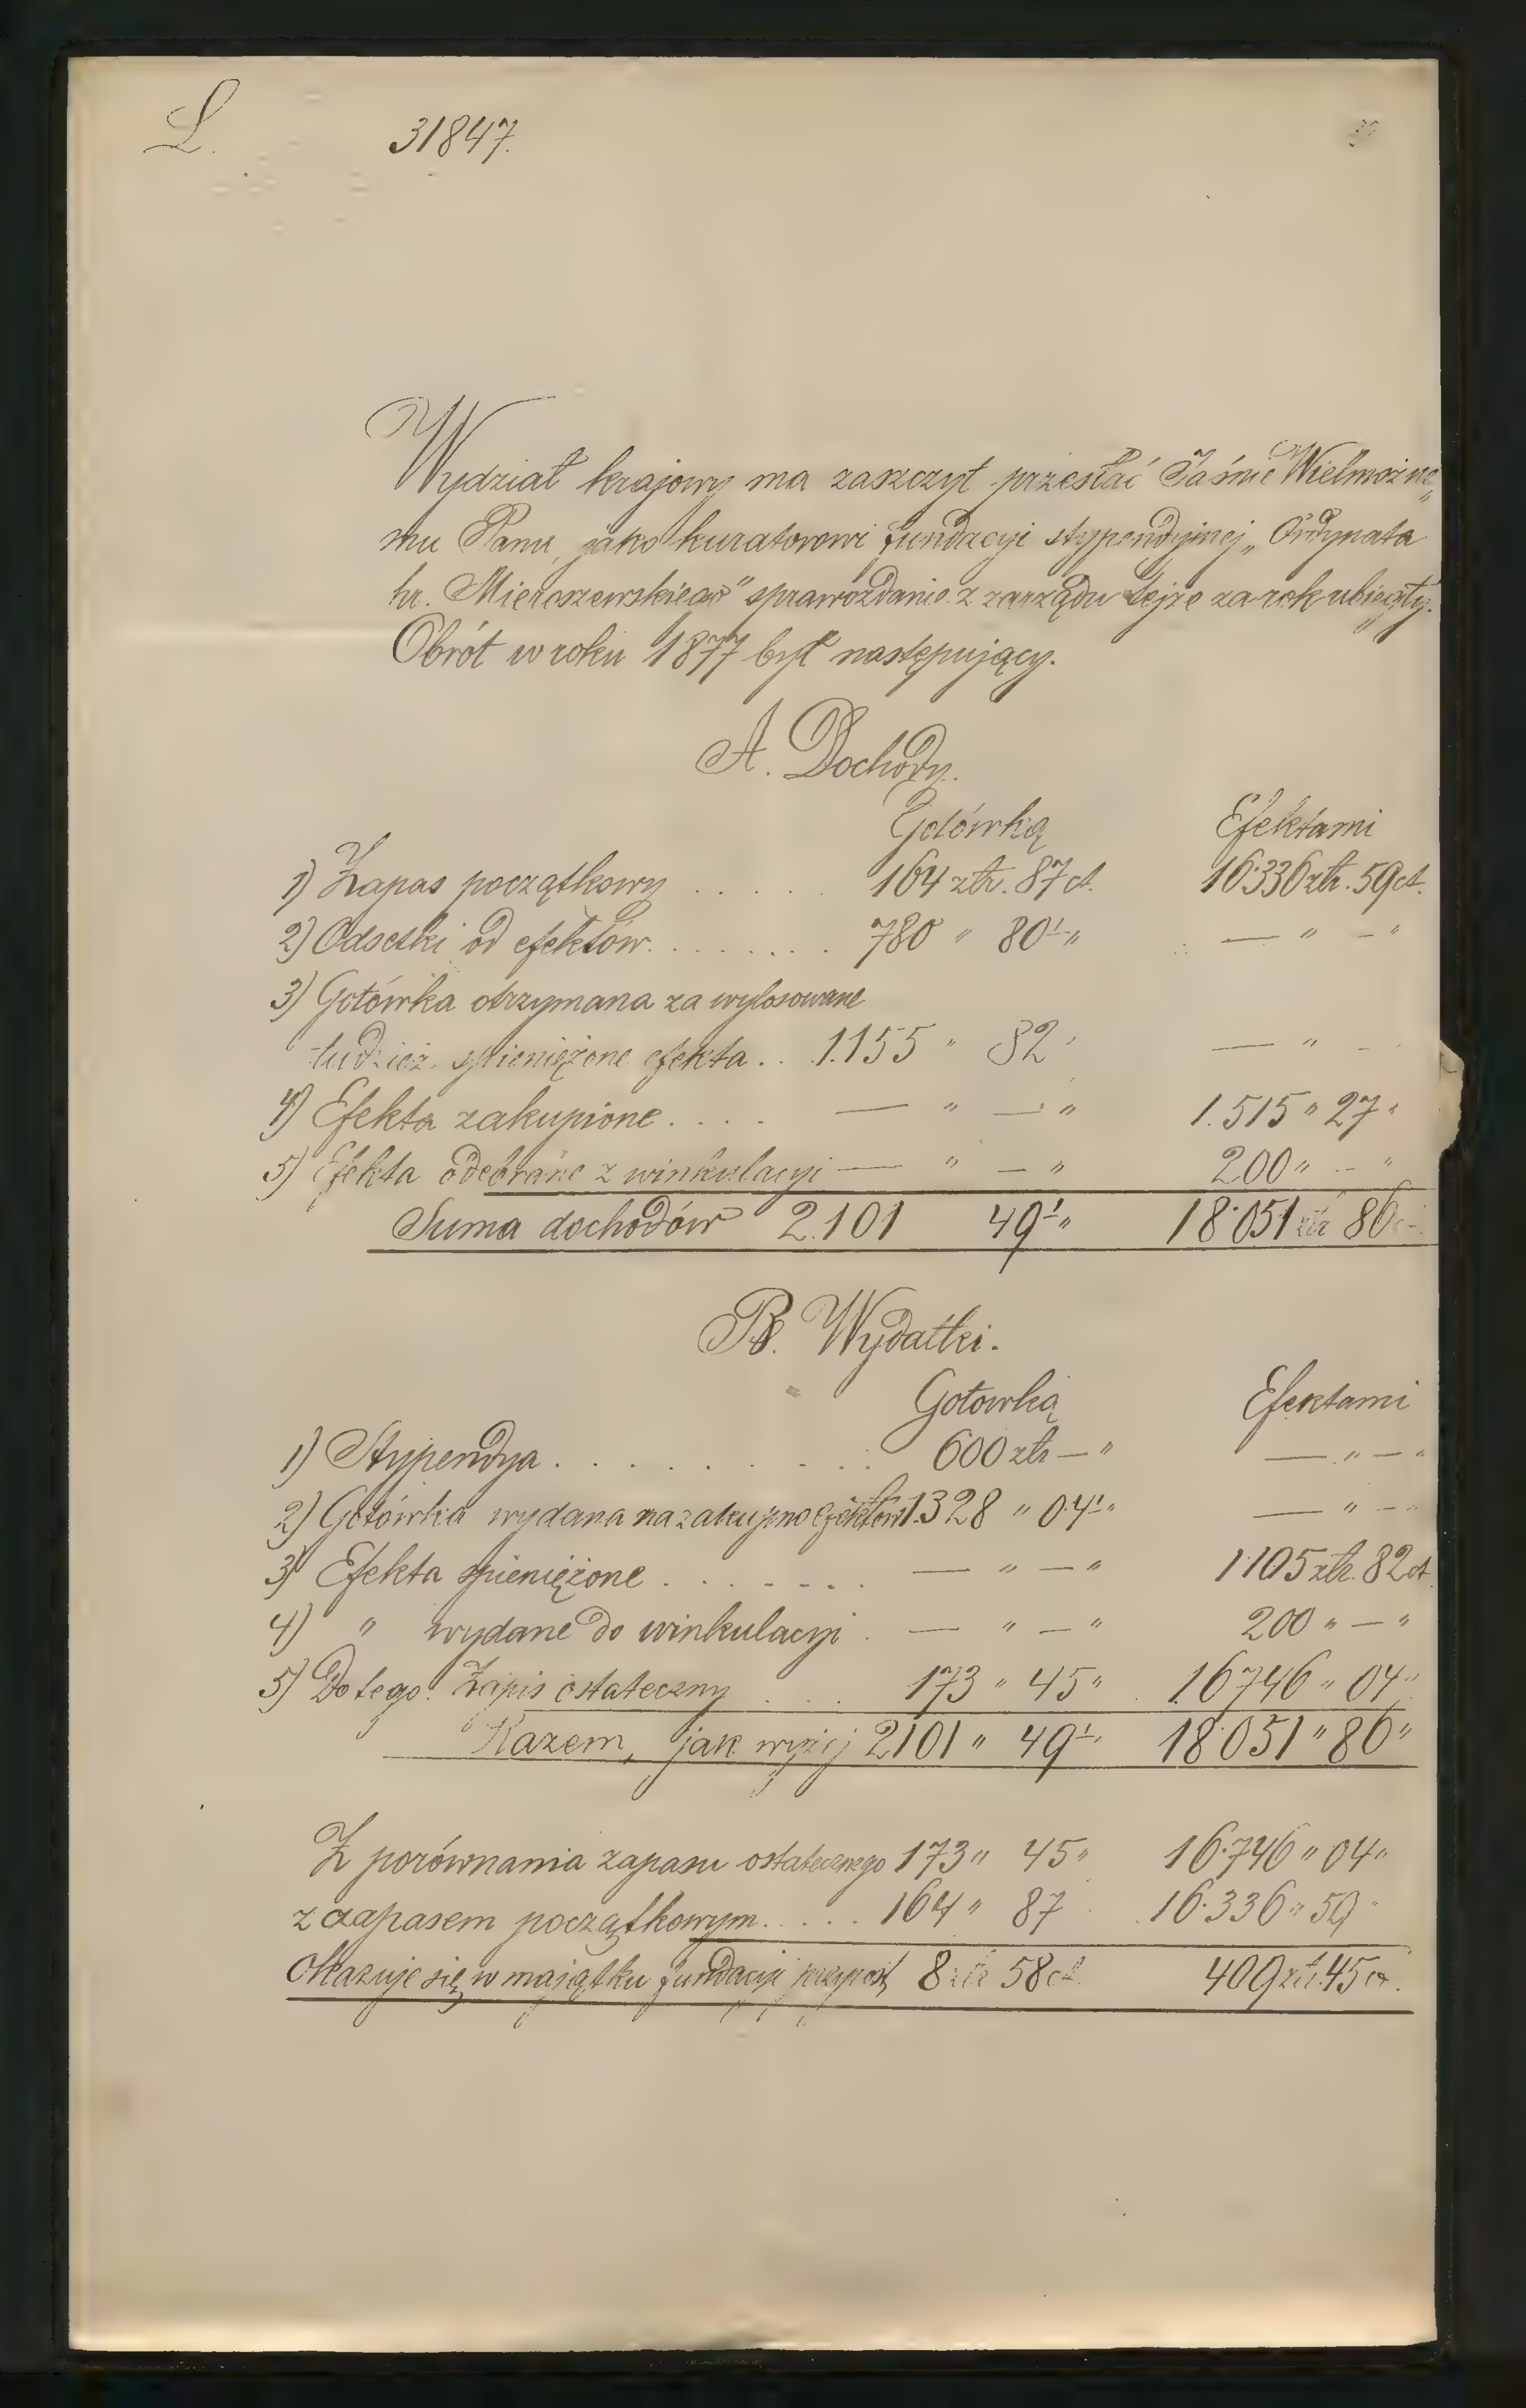 L. 31847.
Wydział krajowy ma zaszczyt przesłać Jaśnie Wielmożne„
mu Panu jako kuratorowi fundacyi stypendyjnej „Ordynata
hr. Mieroszewskiego" sprawozdanie z zarządu tejże za rok ubiegły.
Obrót w roku 1877 był następujący.
A. Dochody.
Gotówką Efektami
1) Zapas początkowy . . . . . 164 złr. 87 ct. 16.336 złr. 59 ct.
2) Odsetki od efektów . . . . . . . . 780 " 80 1/- " — " – "
3) Gotówka otrzymana za wylosowane
tudzież spieniężone efekta . . 1.155 " 82 " — " –
4) Efekta zakupione . . . . — " — " 1.515 " 27 "
5) Efekta odebrane z winkulacyi — " — " 200 " – "
Suma dochodów 2.101 49 1/- " 18.051 złr 86
B. Wydatki.
Gotowką Efektami
1) Stypendya . . . . . . . . . 600 złr — " — " — "
2) Gotówka wydana na zakupno efektów 1.328 " 04 1/- " — " –
3) Efekta spieniężone . . . . . . . — " — " 1105 złr. 82 ct
4) " wydane do winkulacyi . — " — " 200 " — "
5) Do tego: Zapis ostateczny . . . 173 " 45 " 16746 " 04 "
Razem, jak wyżej 2101 " 49 1/- 18.051 " 86 "
Z porównania zapasu ostatecznego 173 " 45 " 16.746 " 04 "
z zapasem początkowym . . . . . 164 " 87 16.336 " 59 "
okazuje się w majątku fundacyi przyrost 8 złr 58 ct. 409 złr. 45 ct.